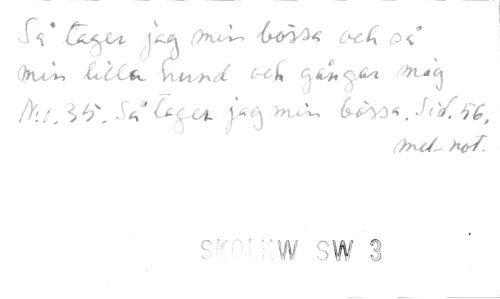 Så tager jag min bössa och så
min lilla hund och gångar mig
N:r. 35. Så tager jag min bössa. Sid. 56.
mel. not.
SKOLKW SW 3